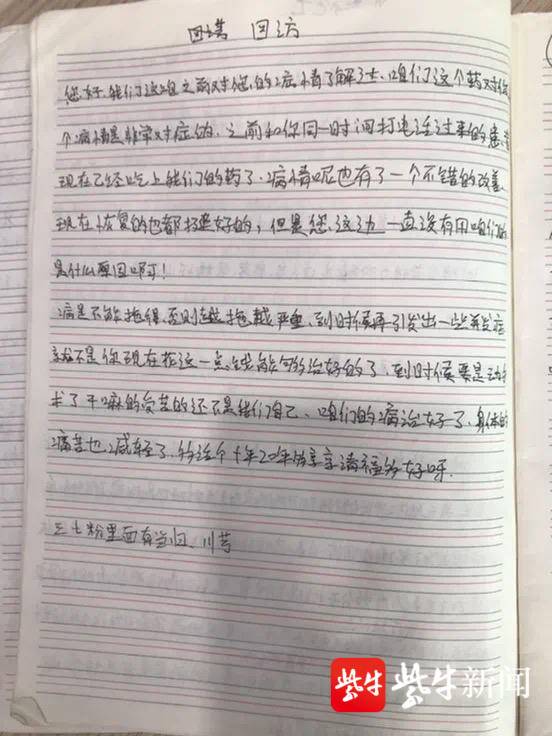 回访
您好,我们这边之前对您的病情了解过,咱们这个药对您
个病情是非常对症的,之前和你同一时间打电话过来的患者
现在已经吃上我们的药了,病情呢也有了一个不错的改善,
现在恢复的也都挺好的,但是您这边一直没有用咱们的
是什么原因呀!
病是不能拖得,否则越拖越严重,到时候再引发出一些并发症
不是你现在花这一点钱能够治好的了,到时候要是动手
术了干嘛的受苦的还不是我们自己,咱们的病治好了,身体的
痛苦也减轻了,多活个十年20年的享享清福多好呀.
三七粉里面有当归、川芎
紫牛 紫牛新闻